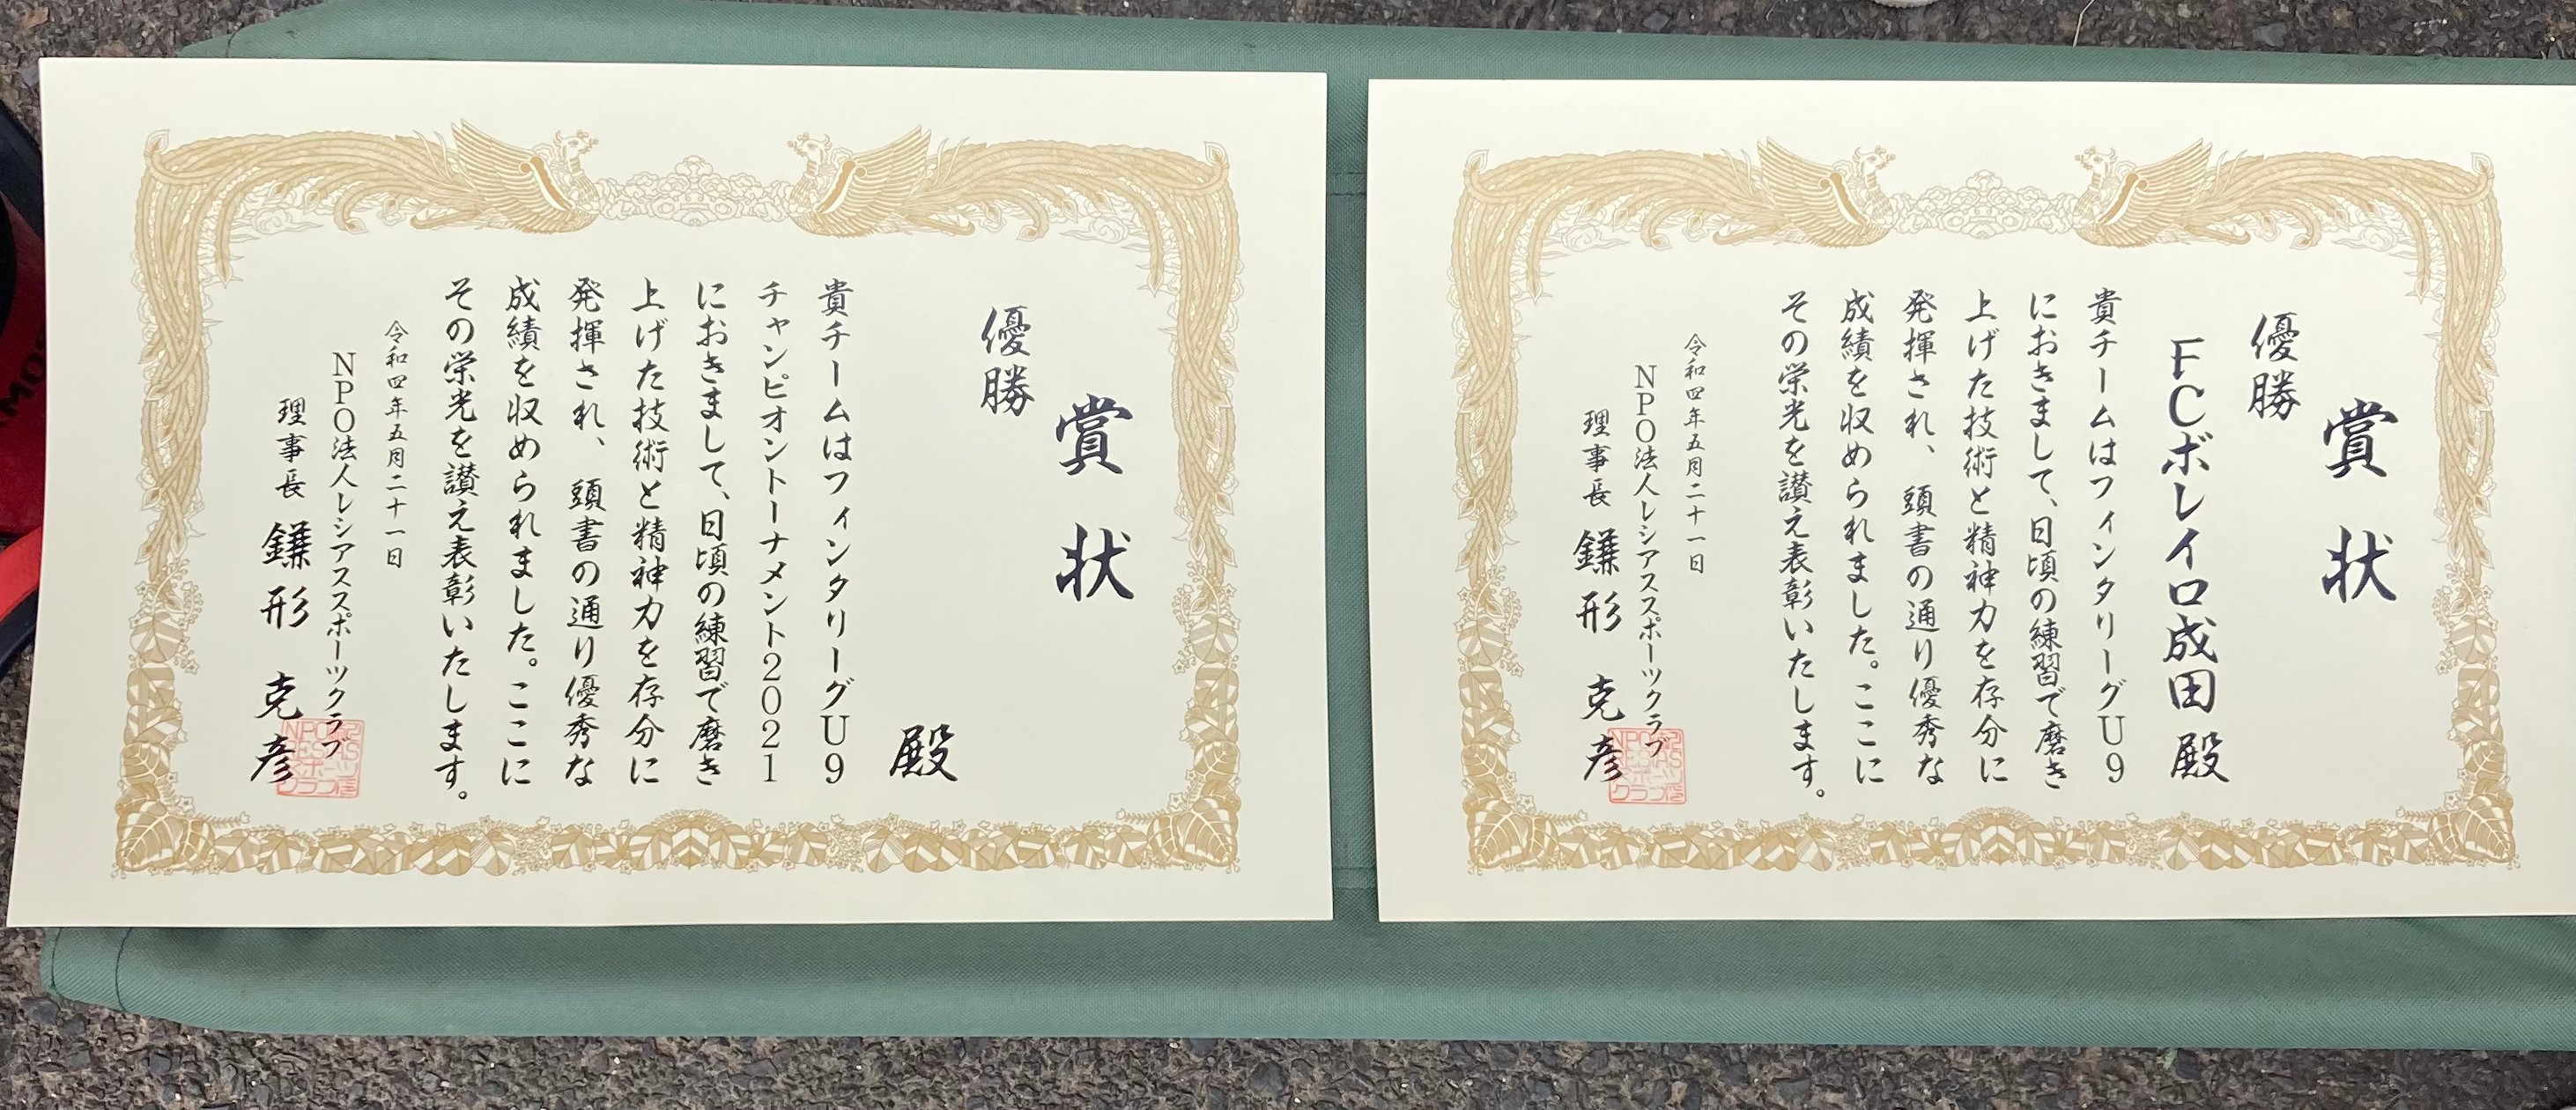 賞状
優勝
FCボレイロ成田 殿
貴チームはフィンタリーグU9
におきまして、日頃の練習で磨き
上げた技術と精神力を存分に
発揮され、頭書の通り優秀な
成績を収められました。ここに
その栄光を讃え表彰いたします。
令和四年五月二十一日
NPO法人レシアススポーツクラブ
理事長 鎌形 克彦
賞状
優勝
殿
貴チームはフィンタリーグU9
チャンピオントーナメント2021
におきまして、日頃の練習で磨き
上げた技術と精神力を存分に
発揮され、頭書の通り優秀な
成績を収められました。ここに
その栄光を讃え表彰いたします。
令和四年五月二十一日
NPO法人レシアススポーツクラブ
理事長 鎌形 克彦